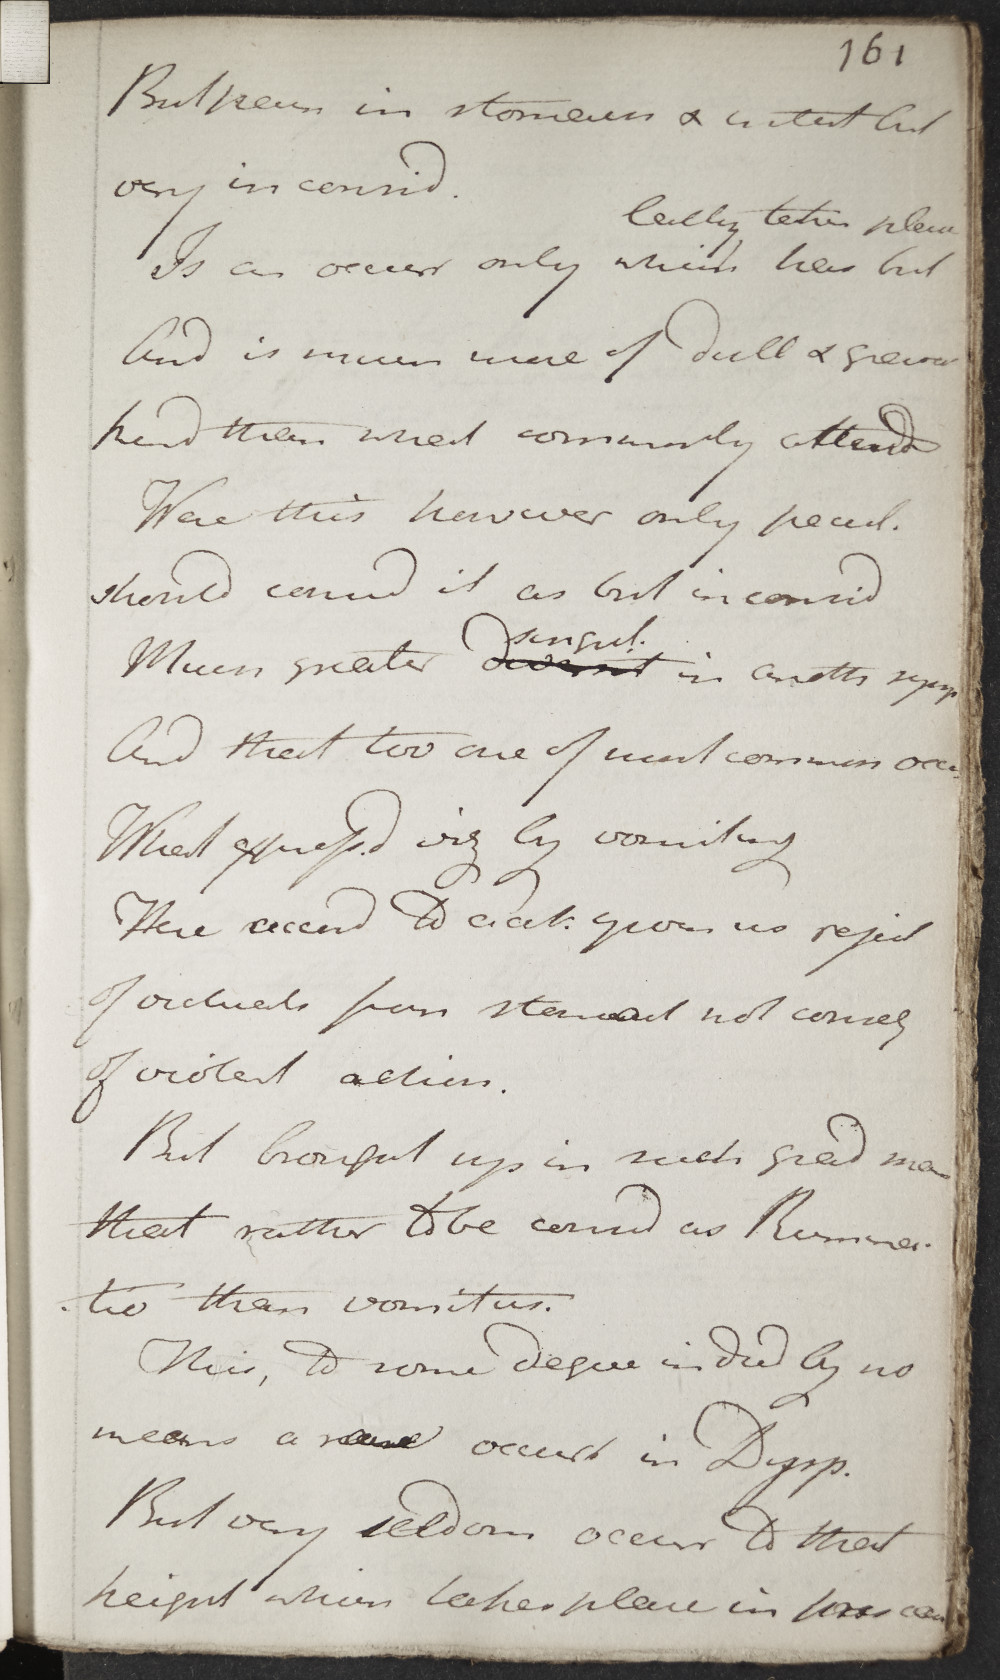 161
But pain in stomach & intest but
very in consid.
lately taken place
Is an occurr only which has but
And is much more of dull & graver
kind than what commonly attend
Were this however only pecul.
should consid it as but in consid
Much greater singul. in anoth symp
And that too one of most common occu
What express.d viz by vomiting
Here accord to acct. given us reject
of victuals from stomach not conseq
of violent action.
But brought up in such grad man
that rather to be consid as Rumina-
-tio than vomitus.
This, to some degree indeed by no
means a rare occurr in Dysp.
But very seldom occurr to that
height which takes place in pres case